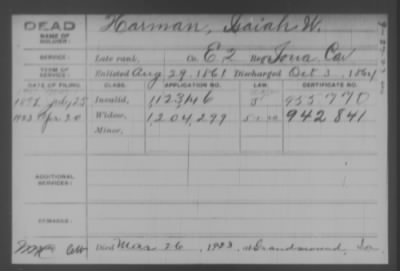 DEAD
NAME OF SOLDIER:
Harman, Isaiah W.
SERVICE:
Late rank, Co. E 2 Reg't Iowa Cav
TERM OF SERVICE:
Enlisted Aug 29, 1861 Discharged Oct 3, 1864
DATE OF FILING. CLASS. APPLICATION NO. LAW. CERTIFICATE NO.
July 25 Invalid,
1923 Apr 20 Widow, 1,204,299 942841
Minor,
ADDITIONAL SERVICES:
REMARKS:
Died Mar 26, 1923, at Grandmound, Ia.